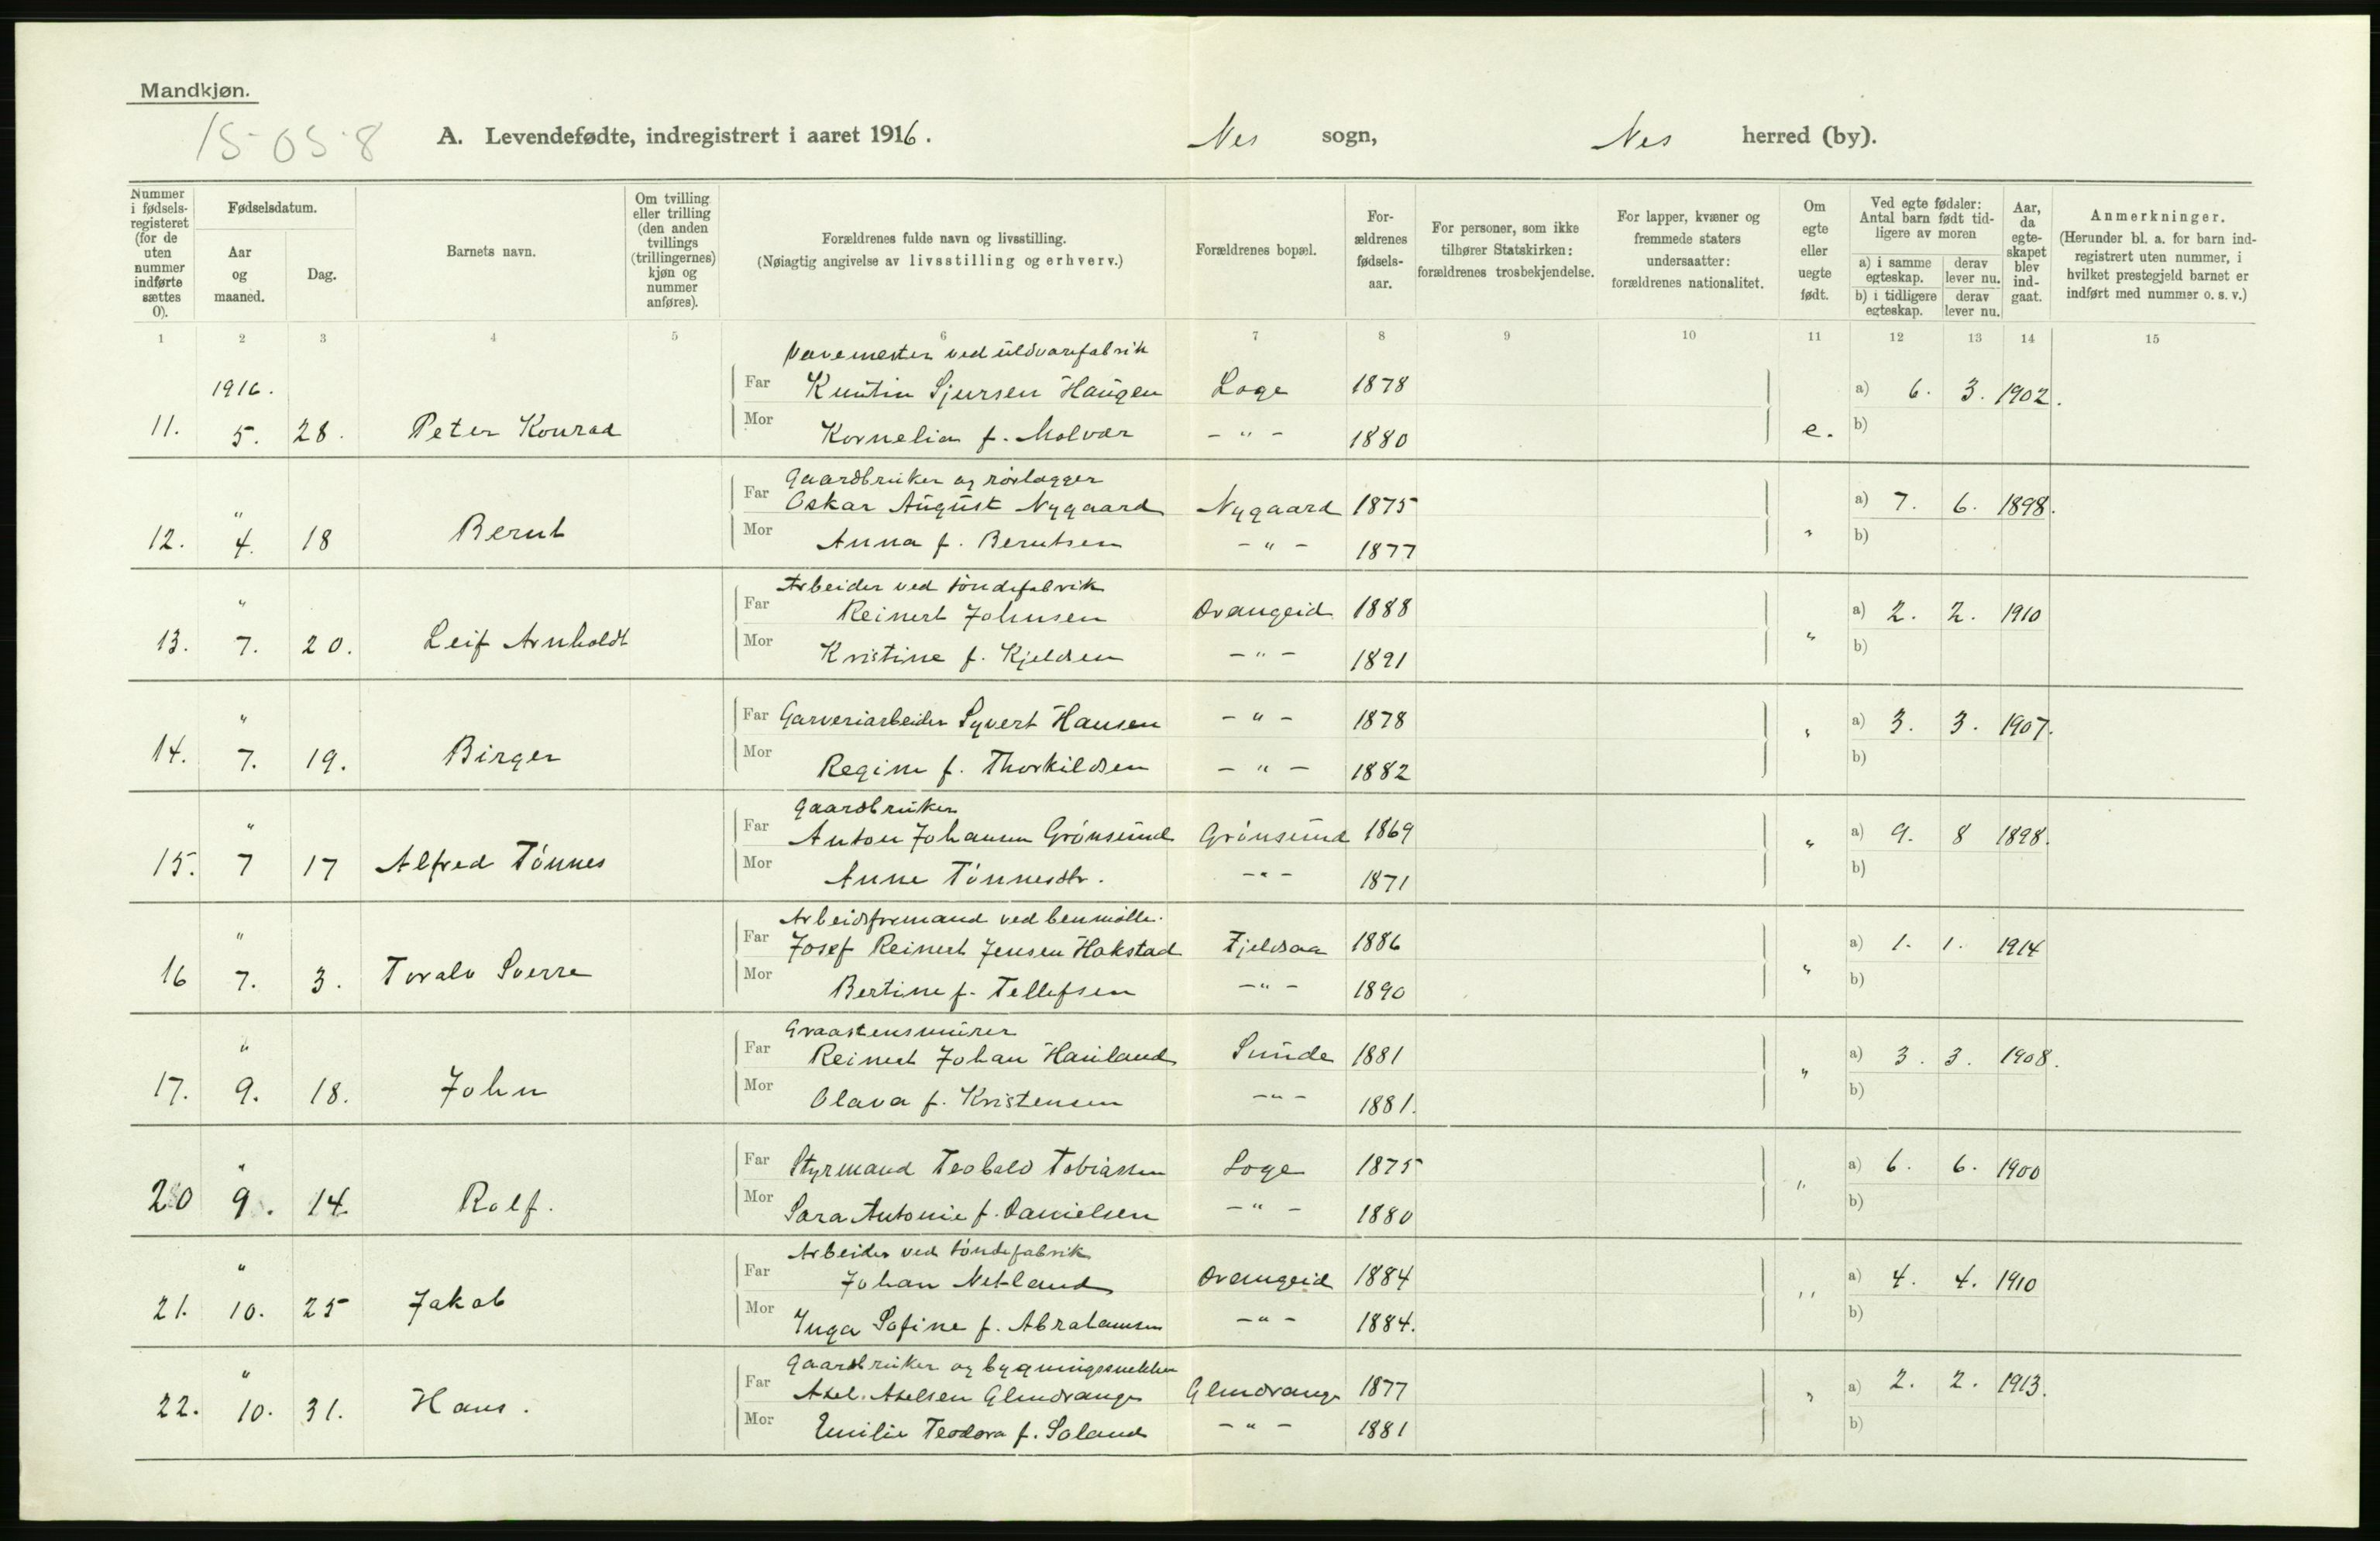 Mandkjøn.
15-05-8
A. Levendefødte, indregistrert i aaret 1916. Nes sogn, Nes herred (by).
Nummer i fødsels-registeret (for de uten nummer indførte sættes 0).
Fødselsdatum.
Aar og maaned.
Dag.
Barnets navn.
Om tvilling eller trilling (den anden tvillings (trillingernes) kjøn og nummer anføres).
Forældrenes fulde navn og livsstilling.
(Nøiagtig angivelse av livsstilling og erhverv.)
Forældrenes bopæl.
For-ældrenes fødsels-aar.
For personer, som ikke tilhører Statskirken: forældrenes trosbekjendelse.
For lapper, kvæner og fremmede staters undersaatter: forældrenes nationalitet.
Om egte eller uegte født.
Ved egte fødsler: Antal barn født tid-ligere av moren
a) i samme egteskap. derav lever nu.
b) i tidligere egteskap. derav lever nu.
Aar, da egte-skapet blev ind-gaat.
Anmerkninger.
(Herunder bl. a. for barn ind-registrert uten nummer, i hvilket prestegjeld barnet er indført med nummer o. s. v.)
1 2 3 4 5 6 7 8 9 10 11 12 13 14 15
Vævemester ved uldvarefabrik
1916. Far Kuintin Sjursen Haugen Loge 1878 a) 6. 3. 1902.
11. 5. 28. Peter Konrad Mor Kornelia f. Molvær - " - 1880 e. b)
Gaardbruker og rørlægger
" Far Oskar August Nygaard Nygaard 1875 a) 7. 6. 1898.
12. 4. 18 Bernt Mor Anna f. Berntsen - " - 1877 " b)
Arbeider ved tøndefabrik
" Far Reinert Johnsen Drangeid 1888 a) 2. 2. 1910
13. 7. 20. Leif Arnholdt Mor Kristine f. Kjeldsen - " - 1891 " b)
" Far Garveriarbeider Syvert Hansen - " - 1878 a) 3. 3. 1907.
14. 7. 19. Birger Mor Regine f. Thorkildsen - " - 1882 " b)
Gaardbruker
" Far Anton Johannes Grønsund Grønsund 1869 a) 9. 8 1898.
15. 7 17 Alfred Tønnes Mor Anne Tønnesdtr. - " - 1871 " b)
Arbeidsformand ved benmølle.
" Far Josef Reinert Jensen Hakstad Fjeldsaa 1886 a) 1. 1. 1914
16 7. 3. Toralv Sverre Mor Bertine f. Tellefsen - " - 1890 " b)
Graastensmurer
" Far Reinert Johan Hauland Sunde 1881 a) 3. 3. 1908.
17. 9. 18. John Mor Olava f. Kristensen - " - 1881. " b)
" Far Styrmand Teobald Tobiassen Loge 1875 a) 6. 6. 1900
20 9. 14. Rolf. Mor Sara Antonie f. Danielsen - " - 1880 " b)
Arbeider ved tøndefabrik
" Far Johan Netland Drangeid 1884 a) 4. 4. 1910
21. 10. 25 Jakob Mor Inga Sofine f. Abrahamsen - " - 1884. " b)
Gaardbruker og bygningssnekker
" Far Axel Axelsen Glendrange Glendrange 1877 a) 2. 2. 1913.
22. 10. 31. Hans. Mor Emilie Teodora f. Soland - " - 1881 " b)